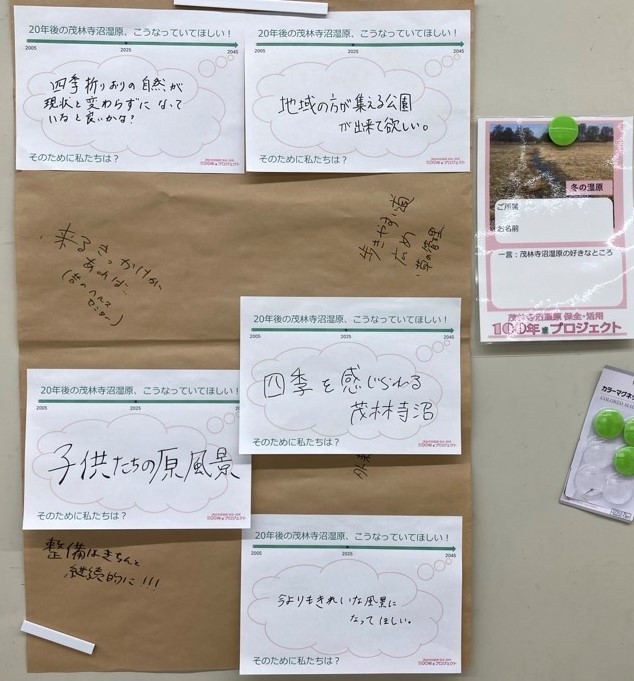 20年後の茂林寺沼湿原、こうなっていてほしい！
2005 2025 2045
四季折りおりの自然が
現状と変わらずに なって
いると良いかな？
そのために私たちは？
100年プロジェクト
20年後の茂林寺沼湿原、こうなっていてほしい！
2005 2025 2045
地域の方が集える公園
が出来て欲しい。
そのために私たちは？
100年プロジェクト
冬の湿原
ご所属
お名前
一言：茂林寺沼湿原の好きなところ
茂林寺沼湿原 保全・活用
100年プロジェクト
来るきっかけが
あれば、
(昔のヘルス
センター)
歩きやすい道
広め
・草の管理
20年後の茂林寺沼湿原、こうなっていてほしい！
2005 2025 2045
四季を感じられる
茂林寺沼
そのために私たちは？
100年プロジェクト
20年後の茂林寺沼湿原、こうなっていてほしい！
2005 2025
子供たちの原風景
そのために私たちは？
100年プロジェクト
カラーマグネッ
整備はきちんと
継続的に!!!
20年後の茂林寺沼湿原、こうなっていてほしい！
2005 2025 2045
今よりもきれいな風景に
なってほしい。
そのために私たちは？
100年プロジェクト